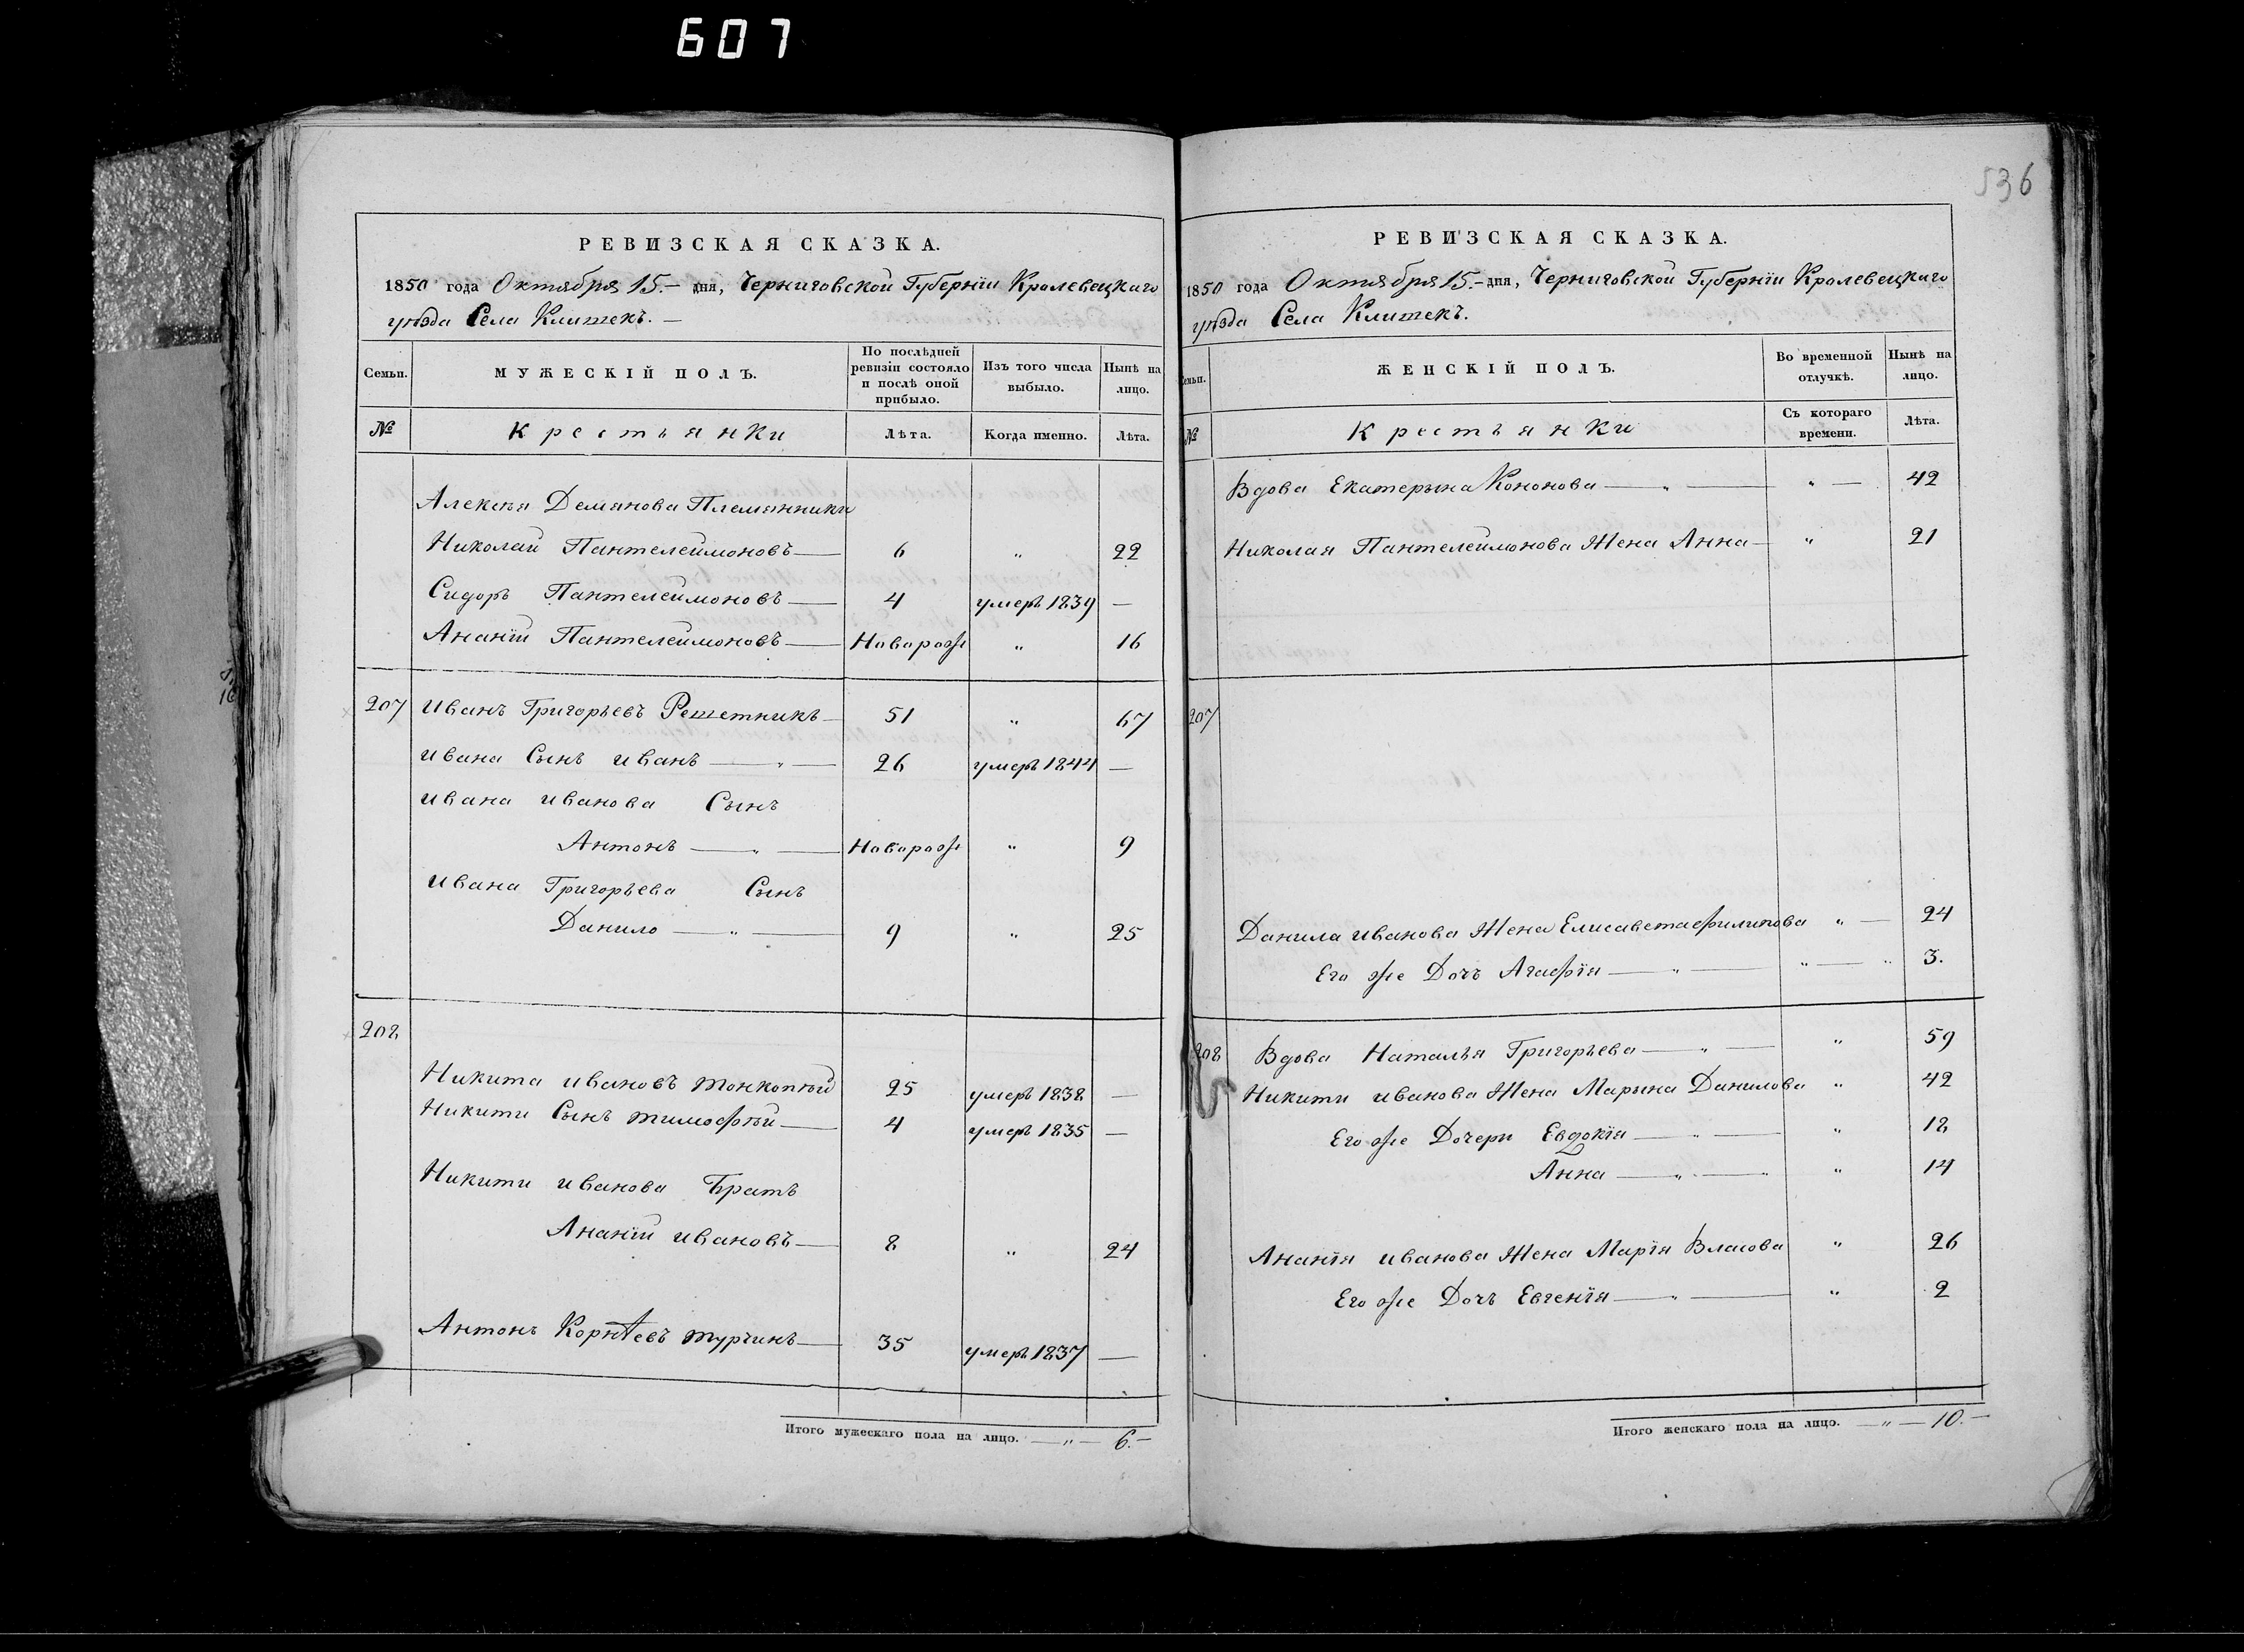 607
536
РЕВИЗСКАЯ СКАЗКА.
1850 года Октября 15.– дня, Черниговской Губерніи Кролевецкаго
уѣзда Села Клишекъ. –
Семьи.
МУЖЕСКІЙ ПОЛЪ.
По послѣдней ревизіи состояло и послѣ оной прибыло.
Изъ того числа выбыло.
Нынѣ на лицо.
№ Крестьянки Лѣта. Когда именно. Лѣта.
Алексѣя Демянова Племянники
Николай Пантелеймоновъ — 6 „ 22
Сидоръ Пантелеймоновъ — 4 умеръ 1839 —
Ананій Пантелеймоновъ — Новорож „ 16
207 Иванъ Григорьевъ Решетникъ — 51 „ 67
Ивана Сынъ Иванъ — „ — 26 умеръ 1844 —
Ивана Иванова Сынъ
Антонъ — „ — Новорож „ 9
Ивана Григорьева Сынъ
Данило — „ — 9 „ 25
208
Никита Ивановъ Тонкопѣй 25 умеръ 1838 —
Никити Сынъ Тимофѣй — 4 умеръ 1835 —
Никити Иванова Братъ
Ананій Ивановъ — 8 „ 24
Антонъ Корнѣевъ Турчинъ — 35 умеръ 1837 —
Итого мужескаго пола на лицо. — „ — 6. –
РЕВИЗСКАЯ СКАЗКА.
1850 года Октября 15.– дня, Черниговской Губерніи Кролевецкаго
уѣзда Села Клишекъ.
Семьи.
ЖЕНСКІЙ ПОЛЪ.
Во временной отлучкѣ.
Нынѣ на лицо.
№ Крестьянки Съ котораго времени. Лѣта.
Вдова Екатерына Кононова — „ — „ — 42
Николая Пантелеймонова Жена Анна — „ 21
207
Данила Иванова Жена Елисавета Филипова „ — 24
Его же Дочъ Агафія — „ — „ — „ 3.
208 Вдова Наталья Григорьева — „ — „ 59
Никити Иванова Жена Марына Данилова „ 42
Его же Дочери Евдокія — „ — „ 18
Анна — „ — „ 14
Ананія Иванова Жена Марія Власова „ 26
Его же Дочъ Евгенія — „ — „ 2
Итого женскаго пола на лицо. — „ — 10. –